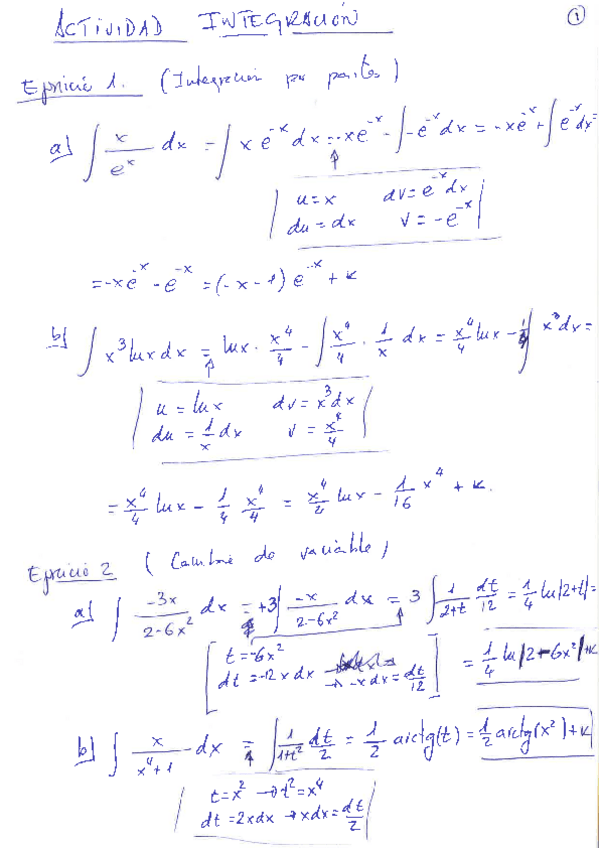 ACTIVIDAD INTEGRACIÓN ①
Ejercicio 1. (Integración por partes)
a) ∫ x/e^x dx = ∫ x e^-x dx = -xe^-x - ∫ -e^-x dx = -xe^-x + ∫ e^-x dx =
u = x dv = e^-x dx
du = dx v = -e^-x
= -xe^-x - e^-x = (-x-1) e^-x + k
b) ∫ x^3 ln x dx = ln x · x^4/4 - ∫ x^4/4 · 1/x dx = x^4/4 ln x - 1/4 ∫ x^3 dx =
u = ln x dv = x^3 dx
du = 1/x dx v = x^4/4
= x^4/4 ln x - 1/4 x^4/4 = x^4/4 ln x - 1/16 x^4 + k.
Ejercicio 2 (Cambio de variable)
a) ∫ -3x/(2-6x^2) dx = +3 ∫ -x/(2-6x^2) dx = 3 ∫ 1/(2+t) dt/12 = 1/4 ln|2+t| =
t = -6x^2
dt = -12x dx → -x dx = dt/12 = 1/4 ln|2-6x^2| + k
b) ∫ x/(x^4+1) dx = ∫ 1/(1+t^2) dt/2 = 1/2 arctg(t) = 1/2 arctg(x^2) + k
t = x^2 → t^2 = x^4
dt = 2x dx → x dx = dt/2